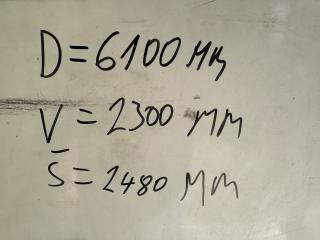 D=6100 мм
V = 2300 мм
S = 2480 мм